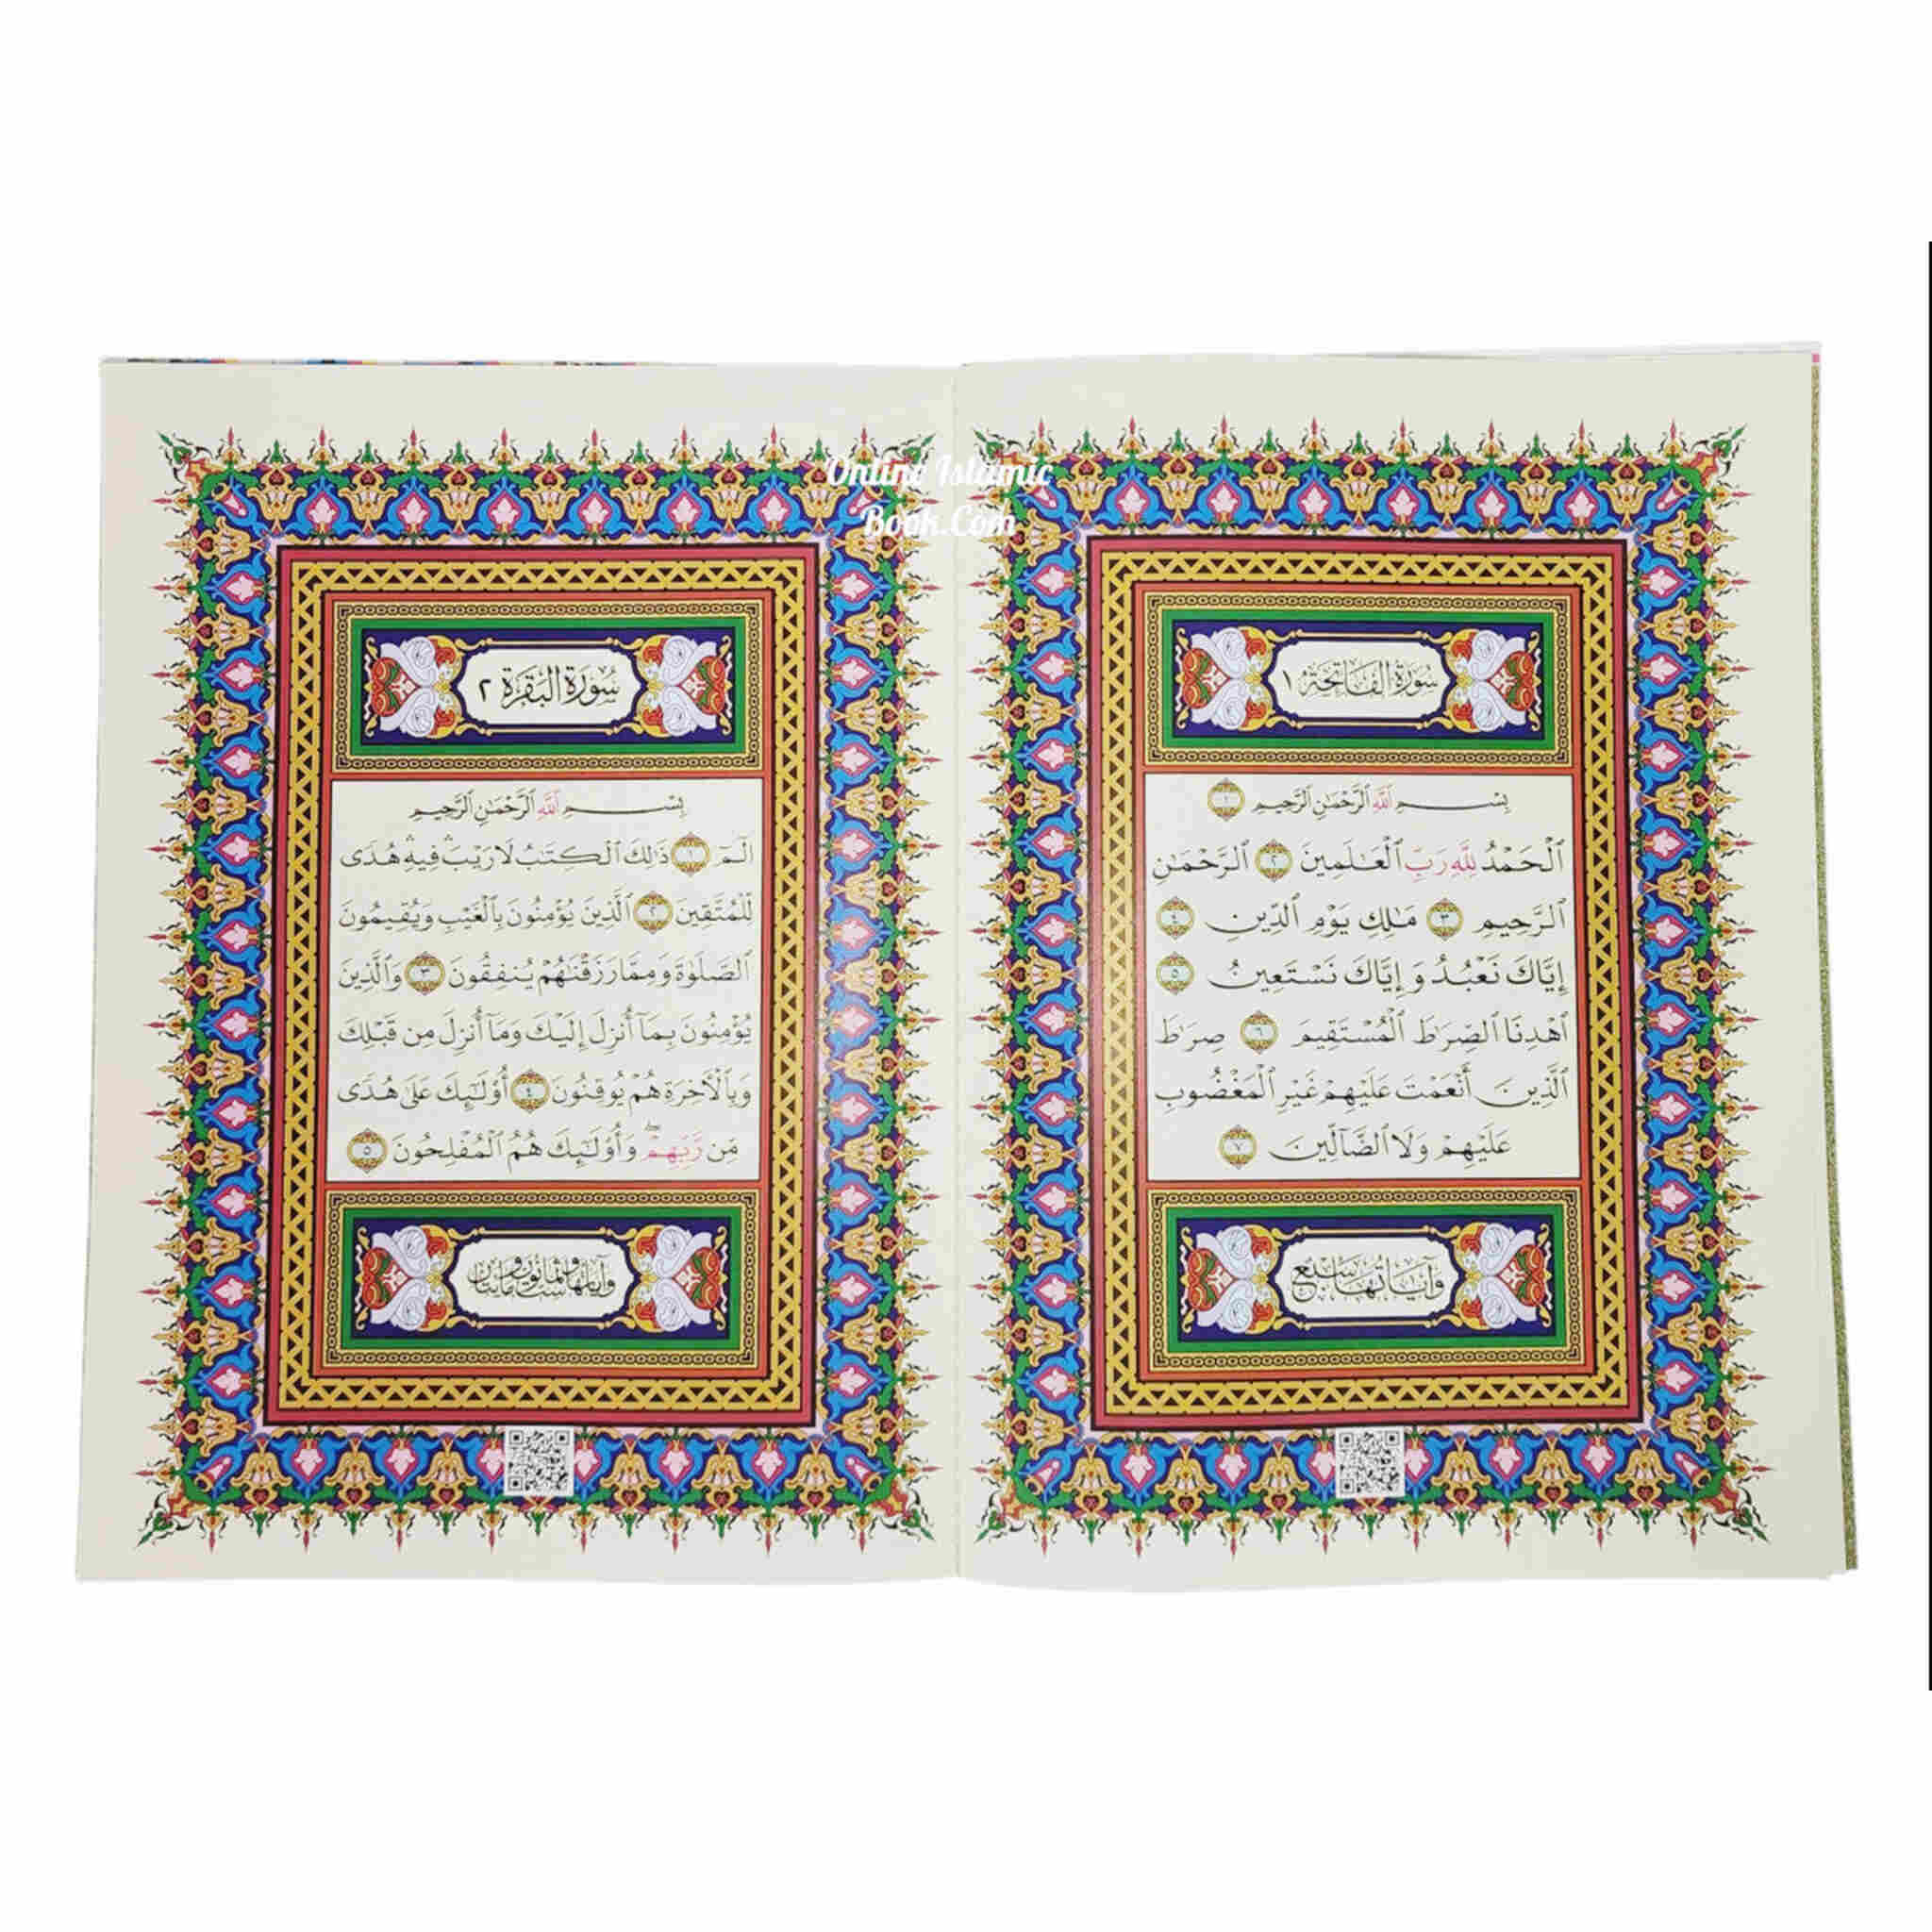 Online Islamic
Book.Com
سُورَةُ الفَاتِحَة ١
بِسْمِ ٱللَّهِ ٱلرَّحْمَٰنِ ٱلرَّحِيمِ ١
ٱلْحَمْدُ لِلَّهِ رَبِّ ٱلْعَٰلَمِينَ ٢ ٱلرَّحْمَٰنِ
ٱلرَّحِيمِ ٣ مَٰلِكِ يَوْمِ ٱلدِّينِ ٤
إِيَّاكَ نَعْبُدُ وَإِيَّاكَ نَسْتَعِينُ ٥
ٱهْدِنَا ٱلصِّرَٰطَ ٱلْمُسْتَقِيمَ ٦ صِرَٰطَ
ٱلَّذِينَ أَنْعَمْتَ عَلَيْهِمْ غَيْرِ ٱلْمَغْضُوبِ
عَلَيْهِمْ وَلَا ٱلضَّآلِّينَ ٧
وَآيَاتُهَا سَبْعٌ
سُورَةُ البَقَرَة ٢
بِسْمِ ٱللَّهِ ٱلرَّحْمَٰنِ ٱلرَّحِيمِ
الٓمٓ ١ ذَٰلِكَ ٱلْكِتَٰبُ لَا رَيْبَۛ فِيهِۛ هُدًى
لِّلْمُتَّقِينَ ٢ ٱلَّذِينَ يُؤْمِنُونَ بِٱلْغَيْبِ وَيُقِيمُونَ
ٱلصَّلَوٰةَ وَمِمَّا رَزَقْنَٰهُمْ يُنفِقُونَ ٣ وَٱلَّذِينَ
يُؤْمِنُونَ بِمَآ أُنزِلَ إِلَيْكَ وَمَآ أُنزِلَ مِن قَبْلِكَ
وَبِٱلْأَخِرَةِ هُمْ يُوقِنُونَ ٤ أُو۟لَٰٓئِكَ عَلَىٰ هُدًى
مِّن رَّبِّهِمْۖ وَأُو۟لَٰٓئِكَ هُمُ ٱلْمُفْلِحُونَ ٥
وآياتها ست وثمانون ومائتان